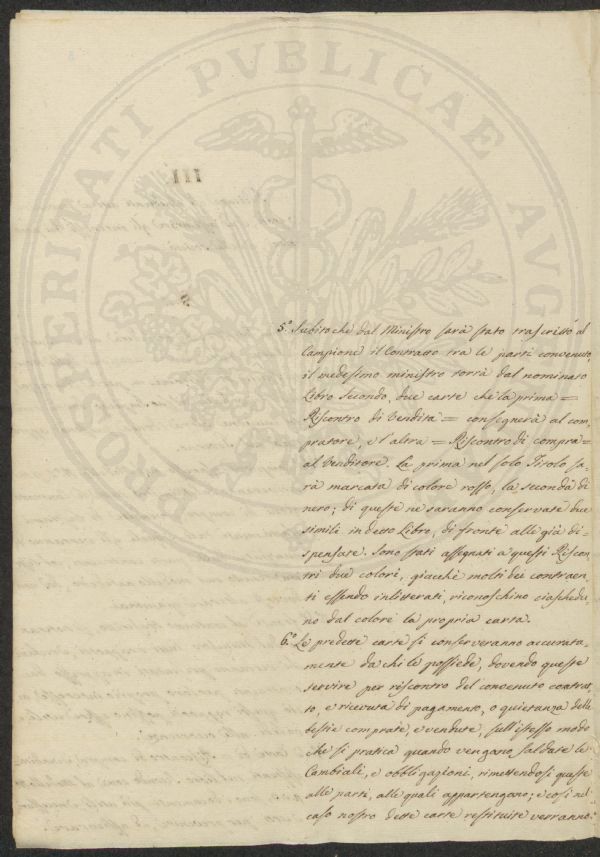 PROSPERITATI PVBLICAE AVG
III
5.° Subito che dal Ministro sarà stato trascritto al
Campione il Contratto tra le parti convenuto,
il medesimo ministro torrà dal nominato
Libro secondo, due carte che la prima =
Riscontro di Vendita = consegnerà al com,
pratore, e l'altra = Riscontro di compra =
al Venditore. La prima nel solo Titolo sa,
rà marcata di colore rosso, la seconda di
nero; di queste ne saranno conservate due
simili in detto Libro, di fronte alle già di=
spensate. Sono stati assegnati a questi Riscon,
tri due colori, giacchè molti dei contraen,
ti essendo inlitterati, riconoschino ciaschedu,
no dal colore la propria carta.
6.° Le predette carte si conserveranno accurata,
mente da chi le possiede, dovendo queste
servire per riscontro del convenuto contrat,
to, e ricevuta di pagamento, o quietanza delle
bestie comprate, e vendute, sull'istesso modo
che si pratica quando vengano saldate le
Cambiali, e obbligazioni, rimettendosi queste
alle parti, alle quali appartengano; e così nel
caso nostro dette carte restituite verranno